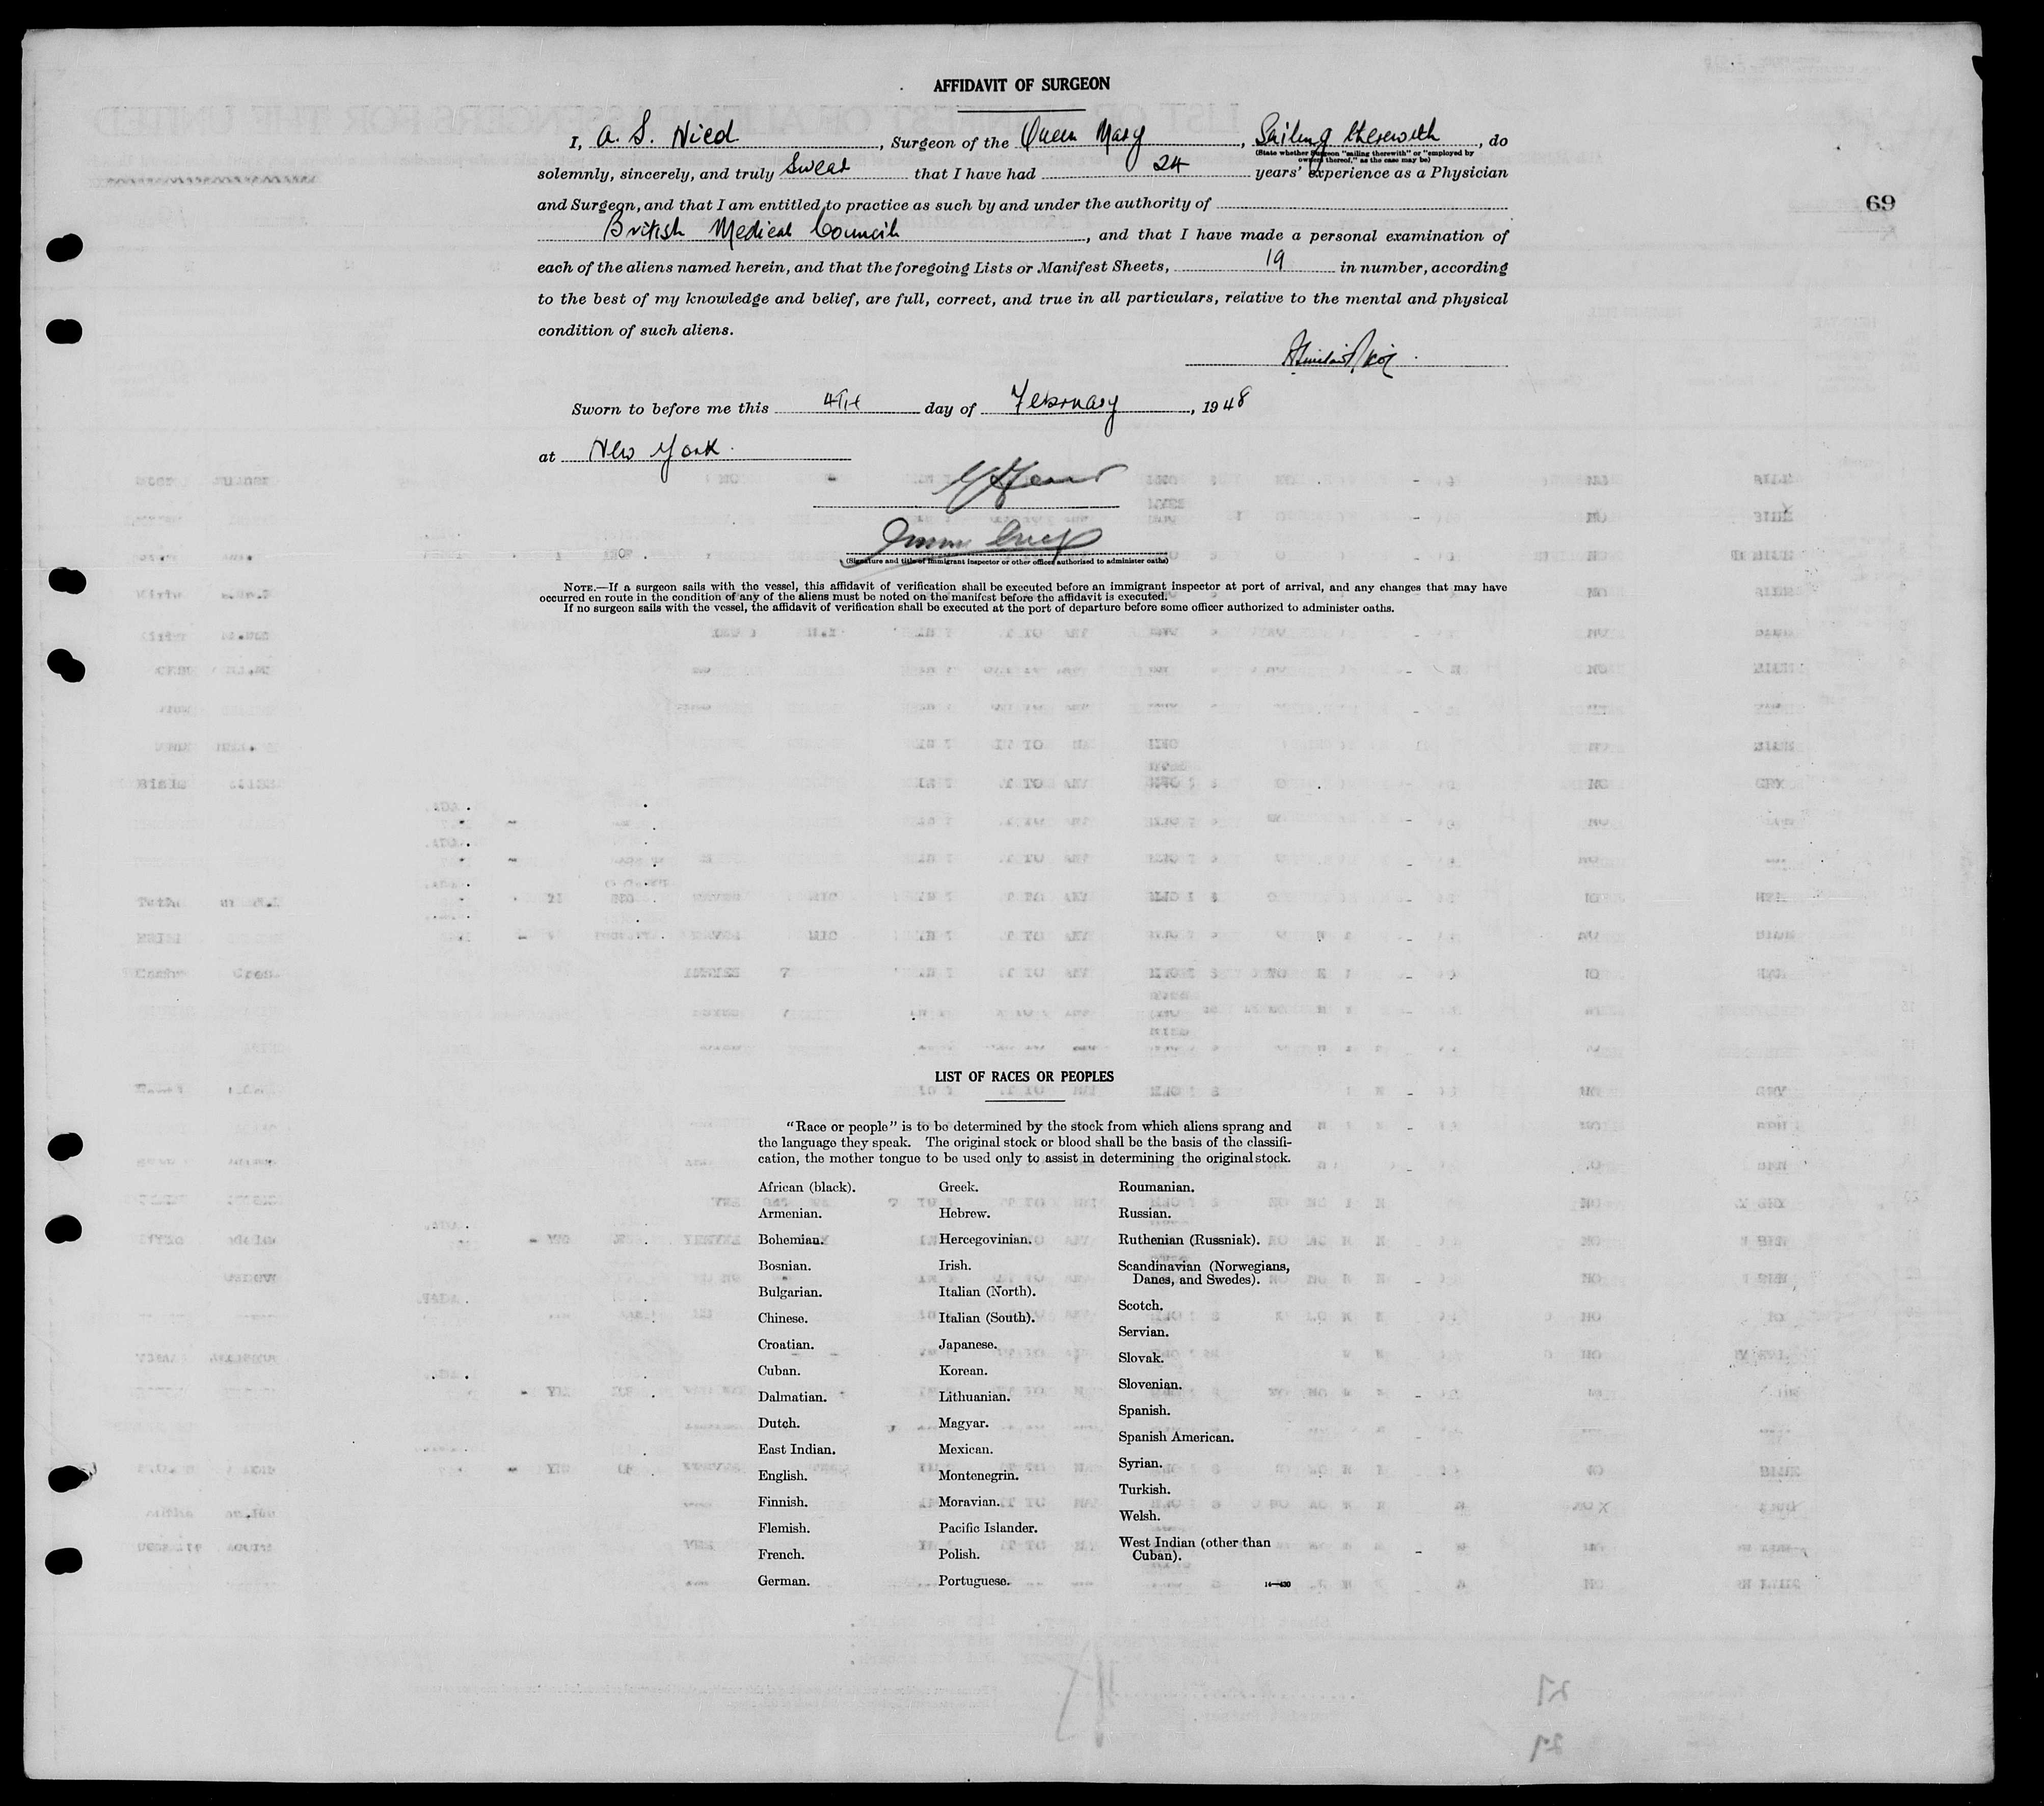 AFFIDAVIT OF SURGEON
I, A. S. , Surgeon of the Queen Mary, Sailing therewith, do
(State whether Surgeon "sailing therewith" or "employed by
owners thereof," as the case may be)
solemnly, sincerely, and truly Swear that I have had 24 years' experience as a Physician
69
and Surgeon, and that I am entitled to practice as such by and under the authority of
British Medical Council, and that I have made a personal examination of
each of the aliens named herein, and that the foregoing Lists or Manifest Sheets, 19 in number, according
to the best of my knowledge and belief, are full, correct, and true in all particulars, relative to the mental and physical
condition of such aliens.
Sworn to before me this 4TH day of February, 1948
at New York.
(Signature and title of immigrant inspector or other officer authorized to administer oaths)
NOTE.—If a surgeon sails with the vessel, this affidavit of verification shall be executed before an immigrant inspector at port of arrival, and any changes that may have
occurred en route in the condition of any of the aliens must be noted on the manifest before the affidavit is executed.
If no surgeon sails with the vessel, the affidavit of verification shall be executed at the port of departure before some officer authorized to administer oaths.
LIST OF RACES OR PEOPLES
"Race or people" is to be determined by the stock from which aliens sprang and
the language they speak. The original stock or blood shall be the basis of the classifi-
cation, the mother tongue to be used only to assist in determining the original stock.
African (black).
Armenian.
Bohemian.
Bosnian.
Bulgarian.
Chinese.
Croatian.
Cuban.
Dalmatian.
Dutch.
East Indian.
English.
Finnish.
Flemish.
French.
German.
Greek.
Hebrew.
Hercegovinian.
Irish.
Italian (North).
Italian (South).
Japanese.
Korean.
Lithuanian.
Magyar.
Mexican.
Montenegrin.
Moravian.
Pacific Islander.
Polish.
Portuguese.
Roumanian.
Russian.
Ruthenian (Russniak).
Scandinavian (Norwegians,
Danes, and Swedes).
Scotch.
Servian.
Slovak.
Slovenian.
Spanish.
Spanish American.
Syrian.
Turkish.
Welsh.
West Indian (other than
Cuban).
14—430